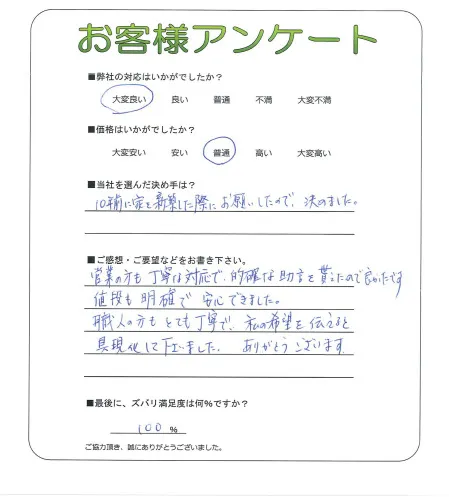 お客様アンケート
■弊社の対応はいかがでしたか？
大変良い 良い 普通 不満 大変不満
■価格はいかがでしたか？
大変安い 安い 普通 高い 大変高い
■当社を選んだ決め手は？
10年前に家を新築した際にお願いしたので、決めました。
■ご感想・ご要望などをお書き下さい。
営業の方も丁寧な対応で、的確な助言を貰えたので良かったです
値段も明確で安心できました。
職人の方もとても丁寧で、私の希望を伝えると
具現化して下さいました。ありがとうございます
■最後に、ズバリ満足度は何％ですか？
100 %
ご協力頂き、誠にありがとうございました。